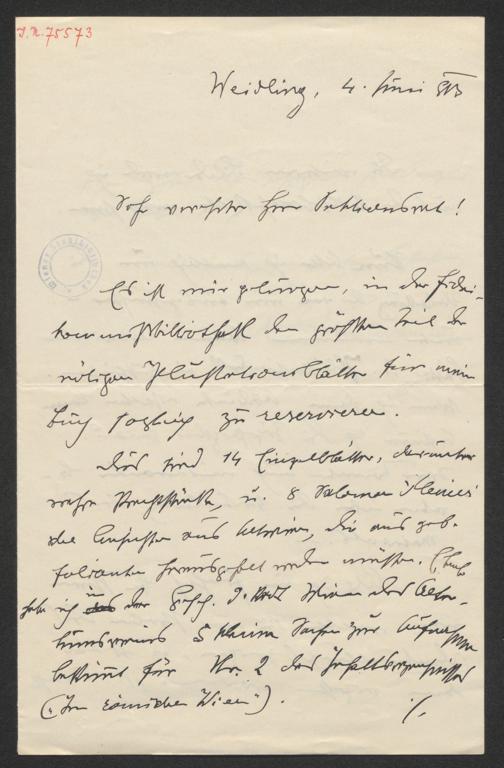 J.N. 75573
Weidling, 4. Juni
Sehr verehrter Herr Sektionsrat!
Es ist mir gelungen, in der Fidei-
kommißbibliothek den größten Teil der
nötigen Illustrationsblätter für mein
Buch sogleich zu reservieren.
Das sind 14 Einzelblätter, darunter
wahre Prachtstücke, u. 8 Salomon Kleiner'
sche Ansichten aus
herausgelöst werden müssen. Ebenso
habe ich in der Gesch. d. Stadt Wien des Alter-
tumsvereins 5 kleine Sachen zur Aufnahme
bestimmt für Nr. 2 des Inhaltsverzeichnisses
("Im römischen Wien").
./.